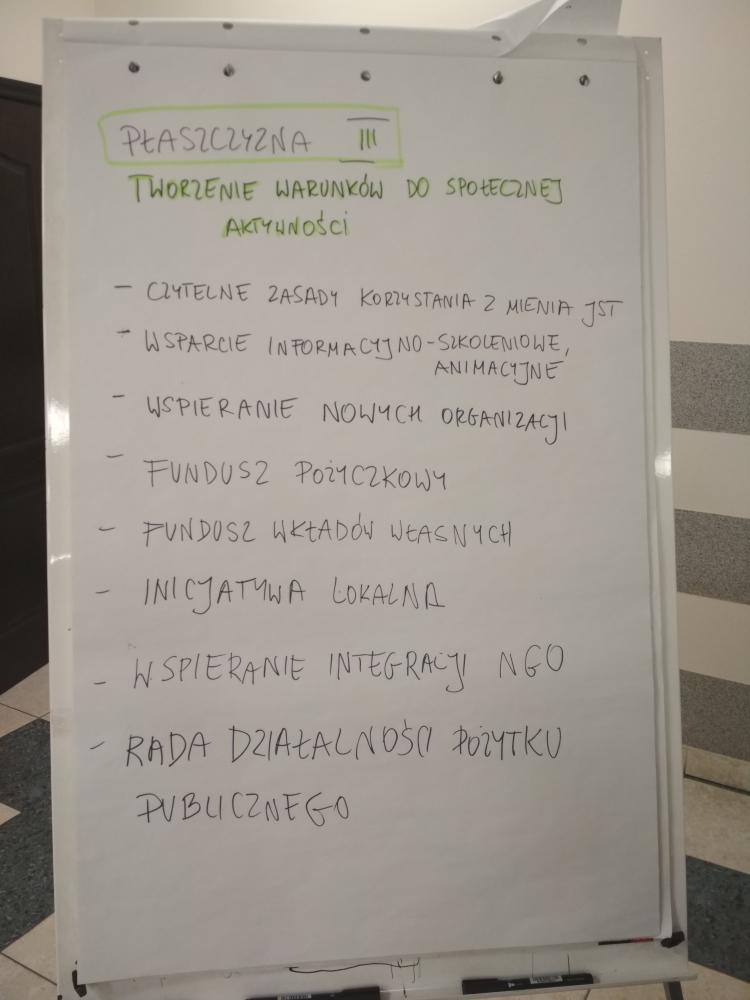 PŁASZCZYZNA III
TWORZENIE WARUNKÓW DO SPOŁECZNEJ
AKTYWNOŚCI
- CZYTELNE ZASADY KORZYSTANIA Z MIENIA JST
- WSPARCIE INFORMACYJNO-SZKOLENIOWE,
ANIMACYJNE
- WSPIERANIE NOWYCH ORGANIZACJI
- FUNDUSZ POŻYCZKOWY
- FUNDUSZ WKŁADÓW WŁASNYCH
- INICJATYWA LOKALNA
- WSPIERANIE INTEGRACJI NGO
- RADA DZIAŁALNOŚCI POŻYTKU
PUBLICZNEGO